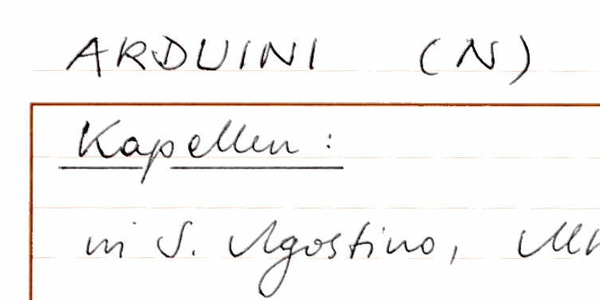 ARDUINI (N)
Kapellen:
in S. Agostino,